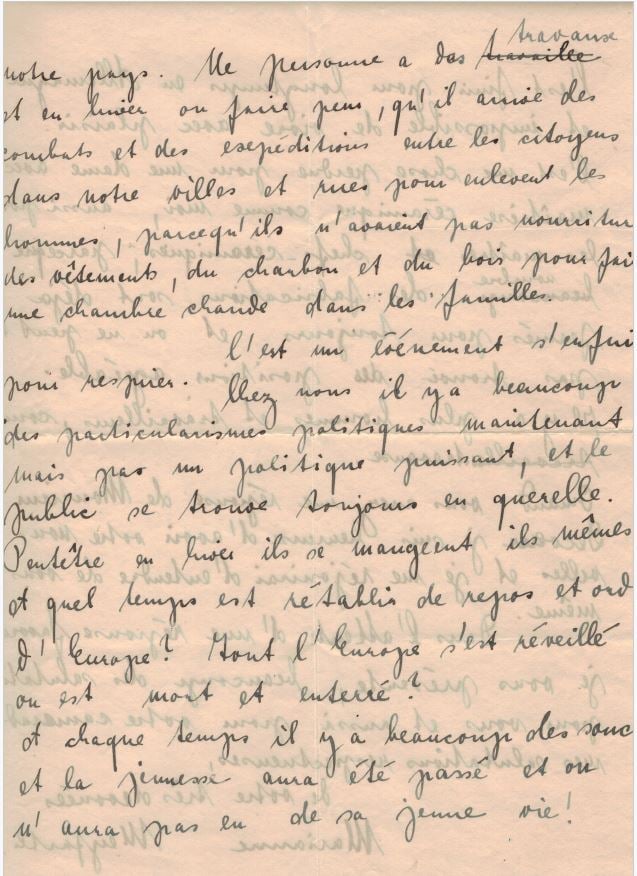 travause
notre pays. Ne personne a das travaille
et en hiver on faire peur, qu'il arrivé des
combats et des exepéditions entre les citoyens
dans notre villes et rues pour enlevent les
hommes, parcequ'ils n'avaient pas nourritur
des vêtements, du charbon et du bois pour fai
une chambre chaude dans les familles.
C'est un événement s'enfui
pour respirer. Chez nous il y a beaucoup
des particularismes politiques maintenant
mais pas un politique puissant, et le
public se trouve toujours en querelle.
Peutêtre en hiver ils se mangeent ils mêmes
et quel temps est rétablir de repos et ord
d'Europe? Tout l'Europe s'est réveillé
ou est mort et enterré?
et chaque temps il y a beaucoup des souc
et la jeunesse aura été passé et on
n'aura pas eu de sa jeune vie!